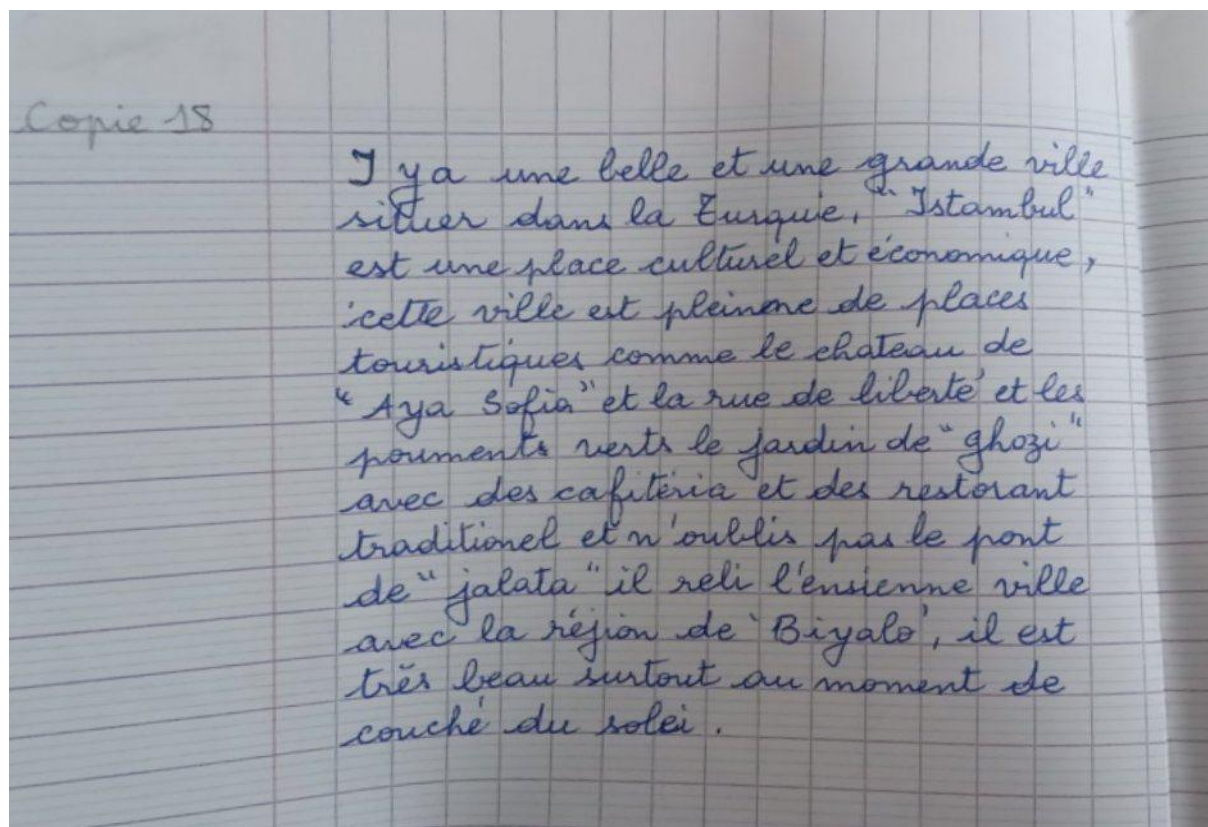 Copie 18
I ya une belle et une grande ville
situer dans la turquie, "Istambul"
est une place culturel et économique,
cette ville est pleinne de places
touristiques comme le chateau de
"Aya Sofia" et la rue de liberté et les
pouments verts le jardin de "ghozi"
avec des cafitéria et des restorant
traditionel et n'oublis pas le pont
de "jalata" il reli l'ensienne ville
avec la réjion de 'Biyalo', il est
très beau surtout au moment de
couché du solei.